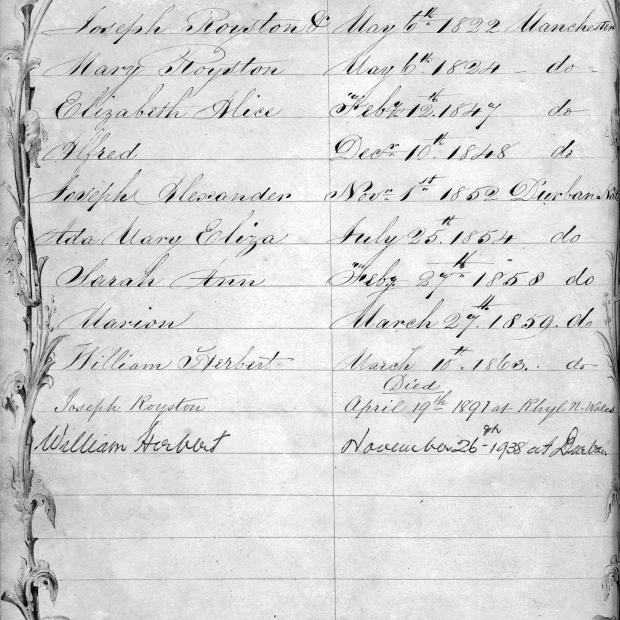 Joseph Royston & May 6th 1822 Manchester
Mary Royston May 6th 1824 do
Elizabeth Alice Feby 12th 1847 do
Alfred Decr 10th 1848 do
Joseph Alexander Novr 1st 1852 Durban Nat
Ada Mary Eliza July 25th 1854 do
Sarah Ann Feby 27th 1858 do
Marion March 27th 1859. do
William Herbert March 10th 1863. do
Died
Joseph Royston April 19th 1891 at Rhyl N. Wales
William Herbert November 26th 1938 at Durban